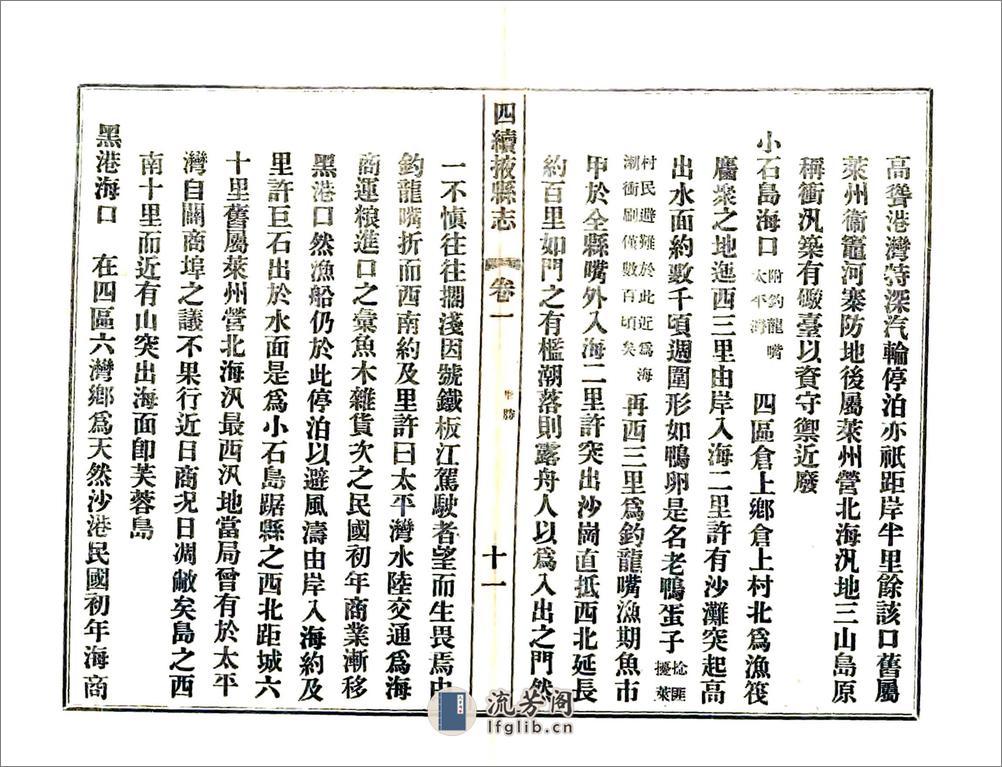 高聳港灣特深汽輪停泊亦祇距岸半里餘該口舊屬
萊州衞竈河寨防地後屬萊州營北海汛地三山島原
稱衝汎築有礮臺以資守禦近廢
小石島海口 附釣龍嘴太平灣 四區倉上鄉倉上村北爲漁筏
麕衆之地迤西三里由岸入海二里許有沙灘突起高
出水面約數千頃週圍形如鴨卵是名老鴨蛋子 捻匪擾萊
村民避難於此近爲海潮衝刷僅數百頃矣 再西三里爲釣龍嘴漁期魚市
甲於全縣嘴外入海二里許突出沙崗直抵西北延長
約百里如門之有檻潮落則露舟人以爲入出之門然
四續掖縣志 卷一 形勝 十一
一不慎往往擱淺因號鐵板江駕駛者望而生畏焉由
釣龍嘴折而西南約及里許曰太平灣水陸交通爲海
商運粮進口之彙魚木雜貨次之民國初年商業漸移
黑港口然漁船仍於此停泊以避風濤由岸入海約及
里許巨石出於水面是爲小石島踞縣之西北距城六
十里舊屬萊州營北海汛最西汛地當局曾有於太平
灣自闢商埠之議不果行近日商况日凋敝矣島之西
南十里而近有山突出海面卽芙蓉島
黑港海口 在四區六灣鄉爲天然沙港民國初年海商
流芳阁
lfglib.cn